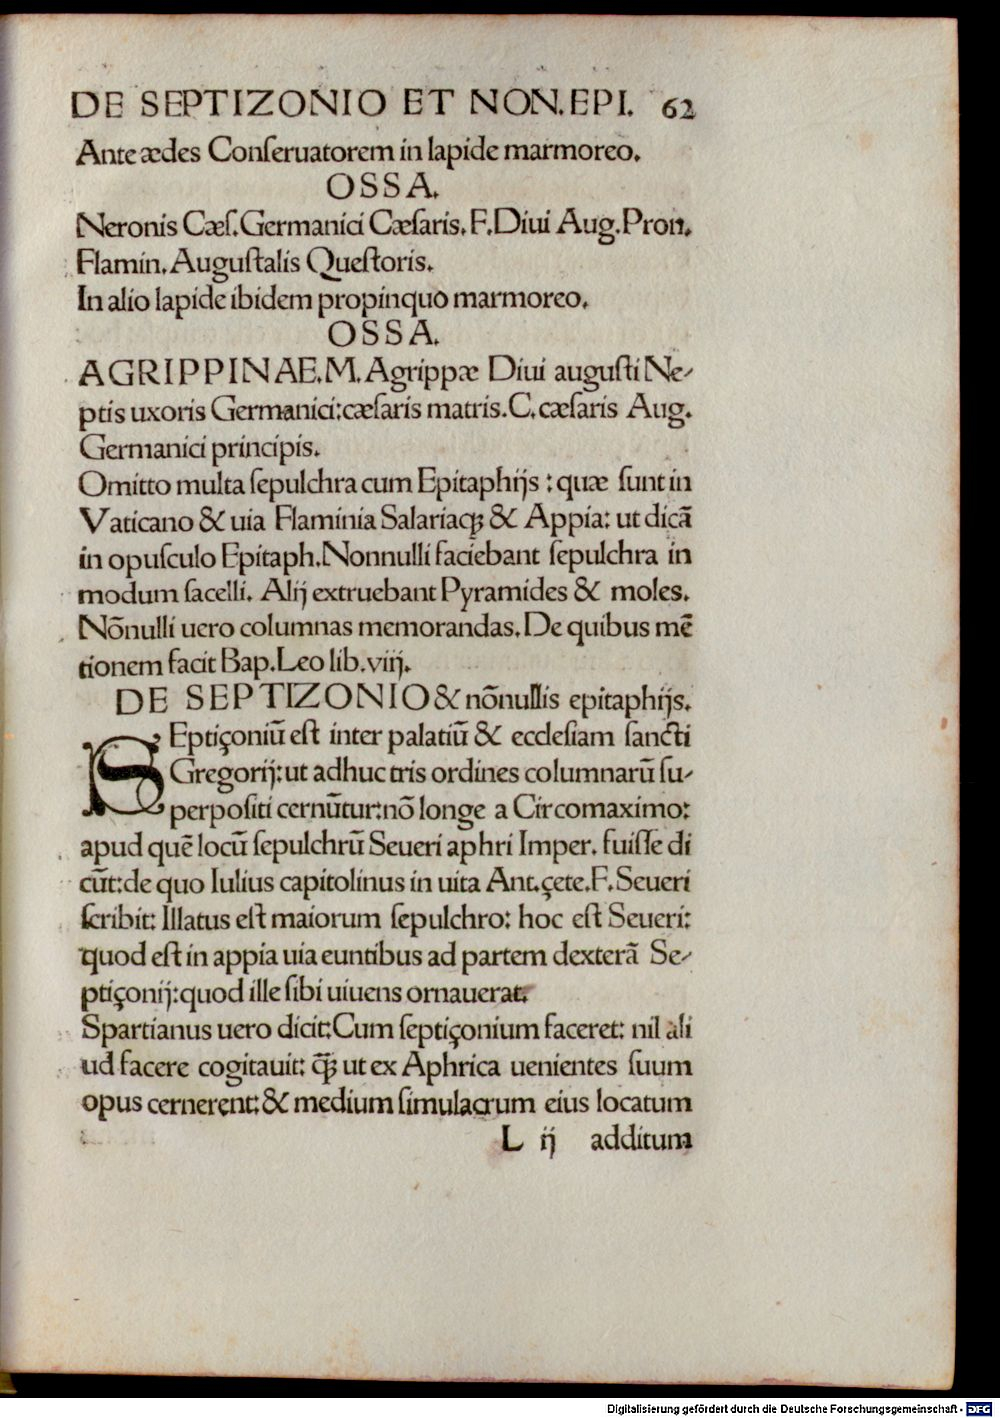 DE SEPTIZONIO ET NON.EPI. 62
Ante ædes Conſeruatorem in lapide marmoreo.
OSSA.
Neronis Cæſ.Germanici Cæſaris.F.Diui Aug.Pron.
Flamin.Auguſtalis Queſtoris.
In alio lapide ibidem propinquo marmoreo.
OSSA.
AGRIPPINAE.M.Agrippæ Diui auguſti Ne-
ptis uxoris Germanici:cæſaris matris.C.cæſaris Aug.
Germanici principis.
Omitto multa ſepulchra cum Epitaphijs : quæ ſunt in
Vaticano & uia Flaminia Salariaqꝫ & Appia: ut dicā
in opuſculo Epitaph.Nonnulli faciebant ſepulchra in
modum ſacelli. Alij extruebant Pyramides & moles.
Nōnulli uero columnas memorandas.De quibus mē
tionem facit Bap.Leo lib.viij.
DE SEPTIZONIO & nōnullis epitaphijs.
SEptiçoniū eſt inter palatiū & eccleſiam ſancti
Gregorij:ut adhuc tris ordines columnarū ſu-
perpoſiti cernūtur:nō longe a Circomaximo:
apud quē locū ſepulchrū Seueri aphri Imper. fuiſſe di
cūt:de quo Iulius capitolinus in uita Ant.çete.F.Seueri
ſcribit: Illatus eſt maiorum ſepulchro: hoc eſt Seueri:
quod eſt in appia uia euntibus ad partem dexterā Se-
ptiçonij:quod ille ſibi uiuens ornauerat.
Spartianus uero dicit:Cum ſeptiçonium faceret: nil ali
ud facere cogitauit: q̄ꝫ ut ex Aphrica uenientes ſuum
opus cernerent:& medium ſimulacrum eius locatum
L ij additum
Digitalisierung gefördert durch die Deutsche Forschungsgemeinschaft - DFG